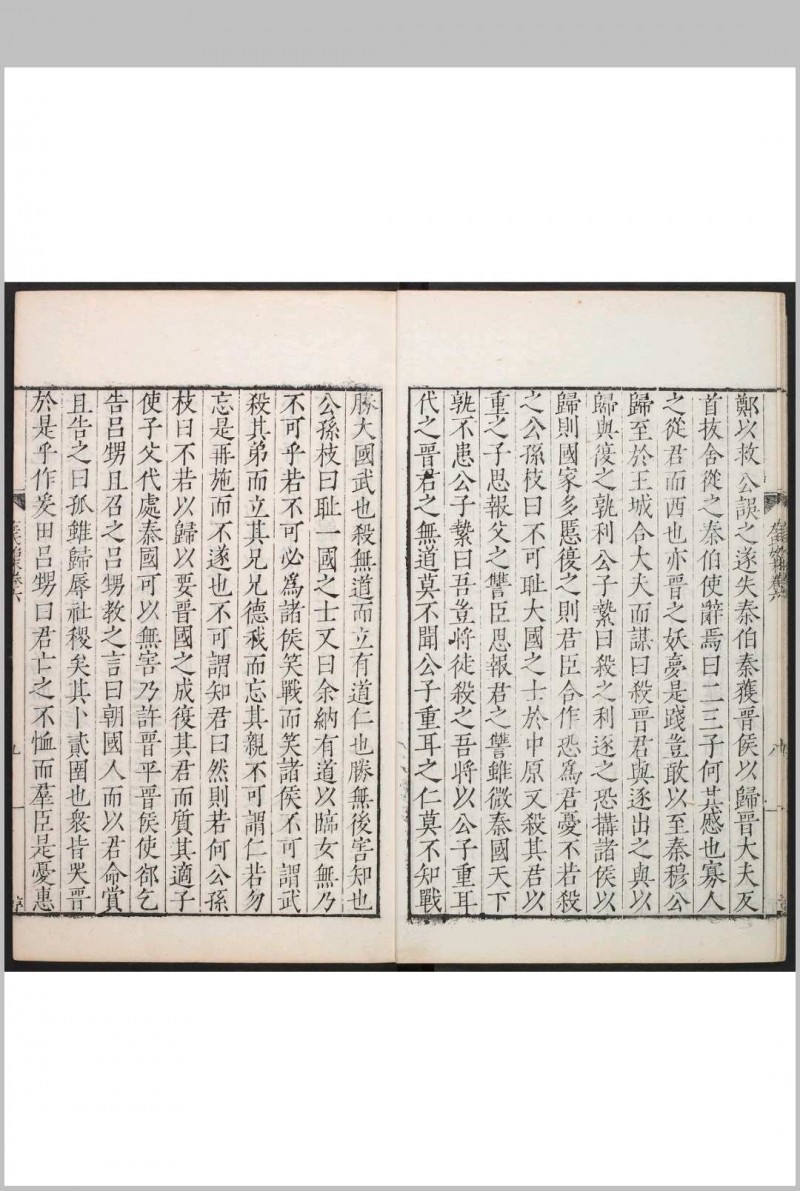 鄭以救公誤之遂失秦伯秦獲晉侯以歸晉大夫反
首拔舍從之秦伯使辭焉曰二三子何其慼也寡人
之從君而西也亦晉之妖夢是踐豈敢以至秦穆公
歸至於王城合大夫而謀曰殺晉君與逐出之與以
歸與復之孰利公子縶曰殺之利逐之恐搆諸侯以
歸則國家多慝復之則君臣合作恐為君憂不若殺
之公孫枝曰不可恥大國之士於中原又殺其君以
重之子思報父之讐臣思報君之讐雖微秦國天下
孰不患公子縶曰吾豈將徒殺之吾將以公子重耳
代之晉君之無道莫不聞公子重耳之仁莫不知戰
勝大國武也殺無道而立有道仁也勝無後害知也
公孫枝曰恥一國之士又曰余納有道以臨女無乃
不可乎若不可必為諸侯笑戰而笑諸侯不可謂武
殺其弟而立其兄兄德我而忘其親不可謂仁若勿
忘是再施而不遂也不可謂知君曰然則若何公孫
枝曰不若以歸以要晉國之成復其君而質其適子
使子父代處秦國可以無害乃許晉平晉侯使郤乞
告呂甥且召之呂甥教之言曰朝國人而以君命賞
且告之曰孤雖歸辱社稷矣其卜貳圉也衆皆哭晉
於是乎作爰田呂甥曰君亡之不恤而羣臣是憂惠
卷六
九